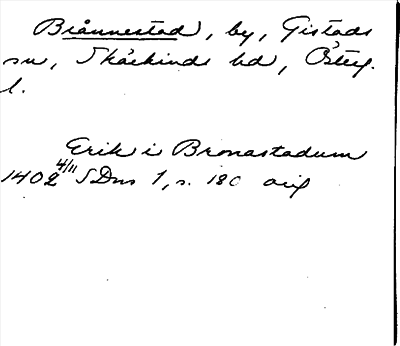 Brånnestad, by, Gistads
sn, Skärkinds hd, Östg.
l.
Erik i Bronastadum
1402 4/11 SDns 1, s. 180 orig